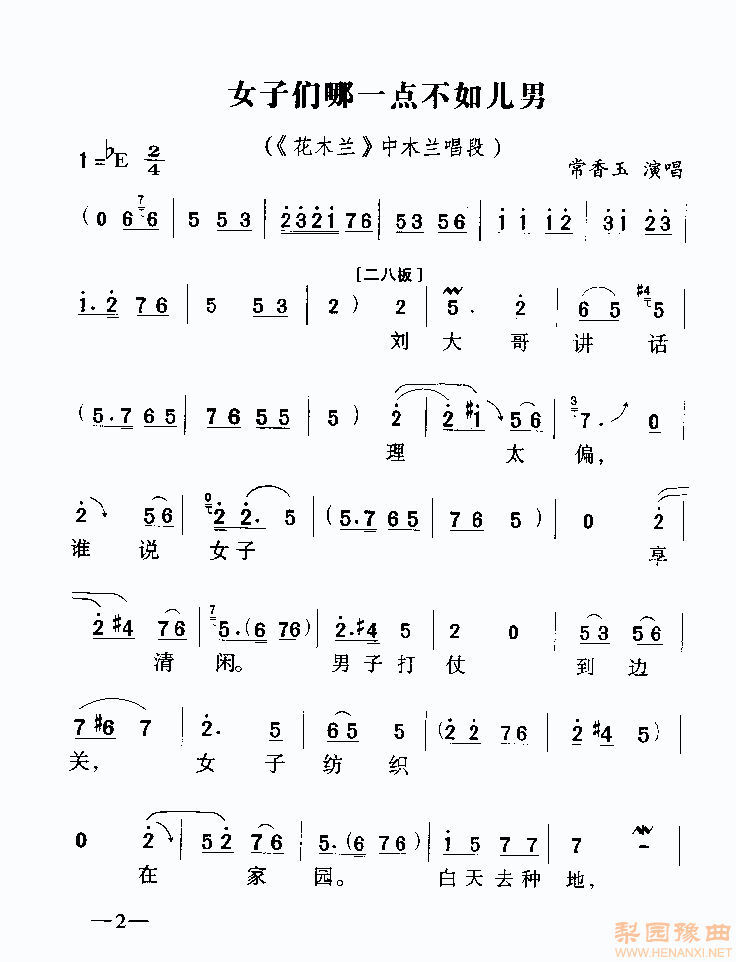 女子们哪一点不如儿男
(《花木兰》中木兰唱段)
1=♭E 2/4
常香玉 演唱
(0 6 7 6 | 5 5 3 | 2 3 2 1 7 6 | 5 3 5 6 | 1 1 1 2 | 3 1 2 3 |
[二八板]
1. 2 7 6 | 5 5 3 | 2 ) 2 | 5. 2 | 6 5 #4 5
刘 大 哥 讲 话
(5. 7 6 5 | 7 6 5 5 | 5 ) 2 | 2 #1 5 6 | 3 7. 0
理 太 偏,
2 5 6 | 0 2 2. 5 | (5. 7 6 5 | 7 6 5 ) | 0 2
谁 说 女 子 享
2 #4 7 6 | 7 5. (6 7 6) | 2. #4 5 | 2 0 | 5 3 5 6
清 闲。 男 子 打 仗 到 边
7 #6 7 | 2. 5 | 6 5 5 | (2 2 7 6 | 2 #4 5 )
关, 女 子 纺 织
0 2 | 5 2 7 6 | 5. (6 7 6) | 1 5 7 7 | 7 –
在 家 园。 白 天 去 种 地,
—2—
梨园豫曲
WWW.HENANXI.NET